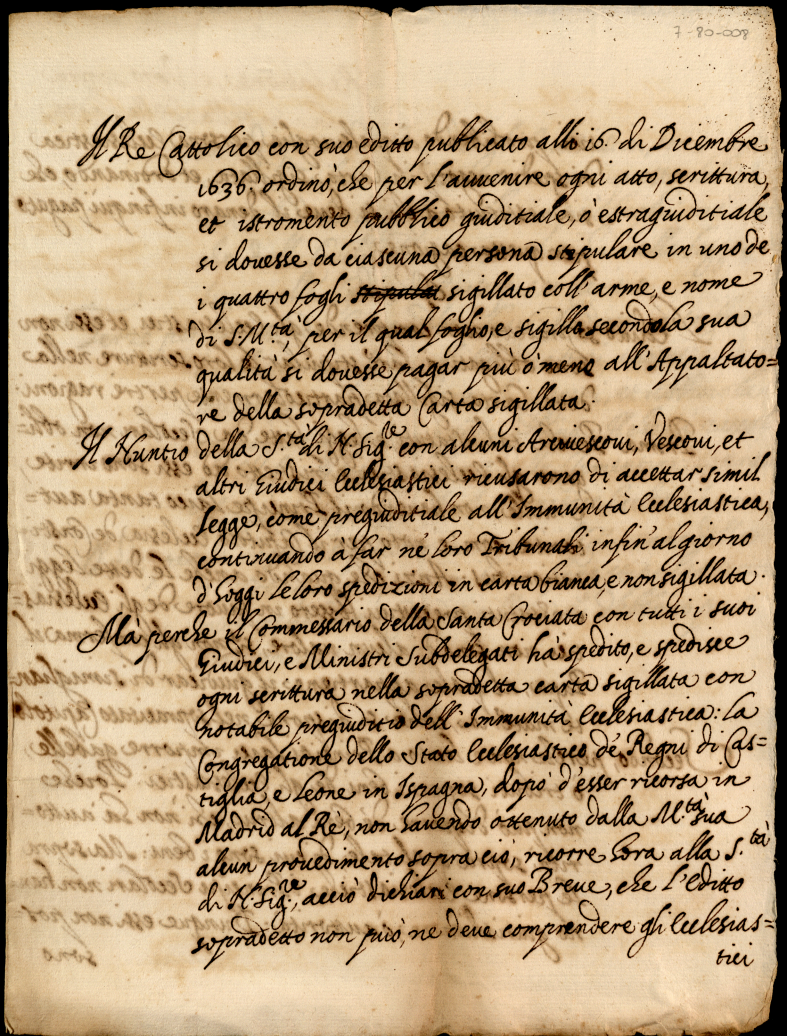 7-80-008
Il Re Cattolico con suo editto publicato alli 16 di Dicembre
1636 ordinò, che per l'auuenire ogni atto, scrittura,
et istromento publico giuditiale, ò estragiuditiale
si douesse da ciascuna persona stipulare in uno de
i quattro fogli stipulat sigillato coll'arme, e nome
di S. M.tà, per il qual foglio, e sigillo secondo la sua
qualità si douesse pagar più ò meno all'Appaltato=
re della sopradetta Carta sigillata.
Il Nuntio della S.tà di N. Sig.re con alcuni Arciuescoui, Vescoui, et
altri Giudici Ecclesiastici ricusarono di accettar simil
legge, come pregiuditiale all'Immunità Ecclesiastica,
continuando à far ne' loro Tribunali infin'al giorno
d'hoggi le loro spedizioni in carta bianca, e non sigillata.
Mà perche il Commessario della Santa Crociata con tutti i suoi
Giudici, e Ministri Subdelegati hà spedito, e spedisce
ogni scrittura nella sopradetta carta sigillata con
notabile pregiuditio dell'Immunità Ecclesiastica: la
Congregatione dello Stato Ecclesiastico de' Regni di Cas=
tiglia, e Leone in Ispagna, dopò d'esser ricorsa in
Madrid al Rè, non hauendo ottenuto dalla M.tà sua
alcun prouedimento sopra ciò, ricorre hora alla S.tà
di N. Sig.re, acciò dichiari con suo Breue, che l'Editto
sopradetto non può, ne deue comprendere gli Ecclesias=
tici